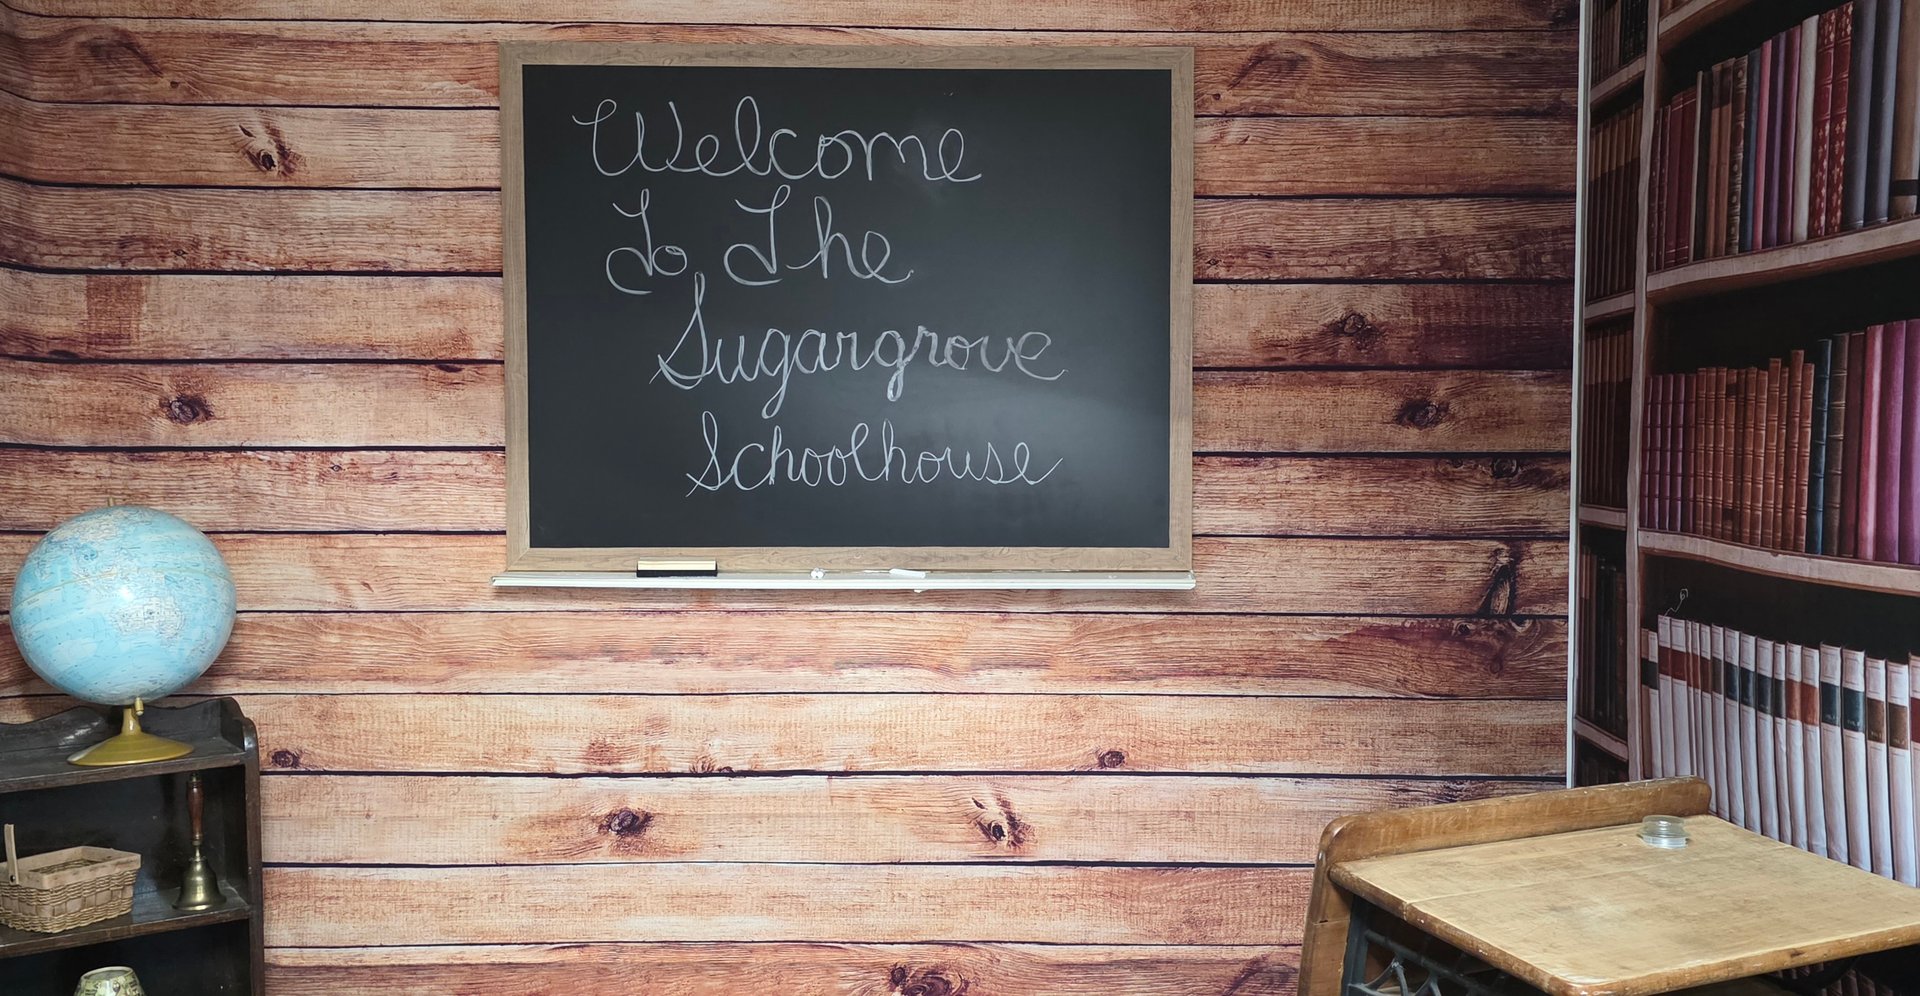 Welcome
To The
Sugargrove
Schoolhouse